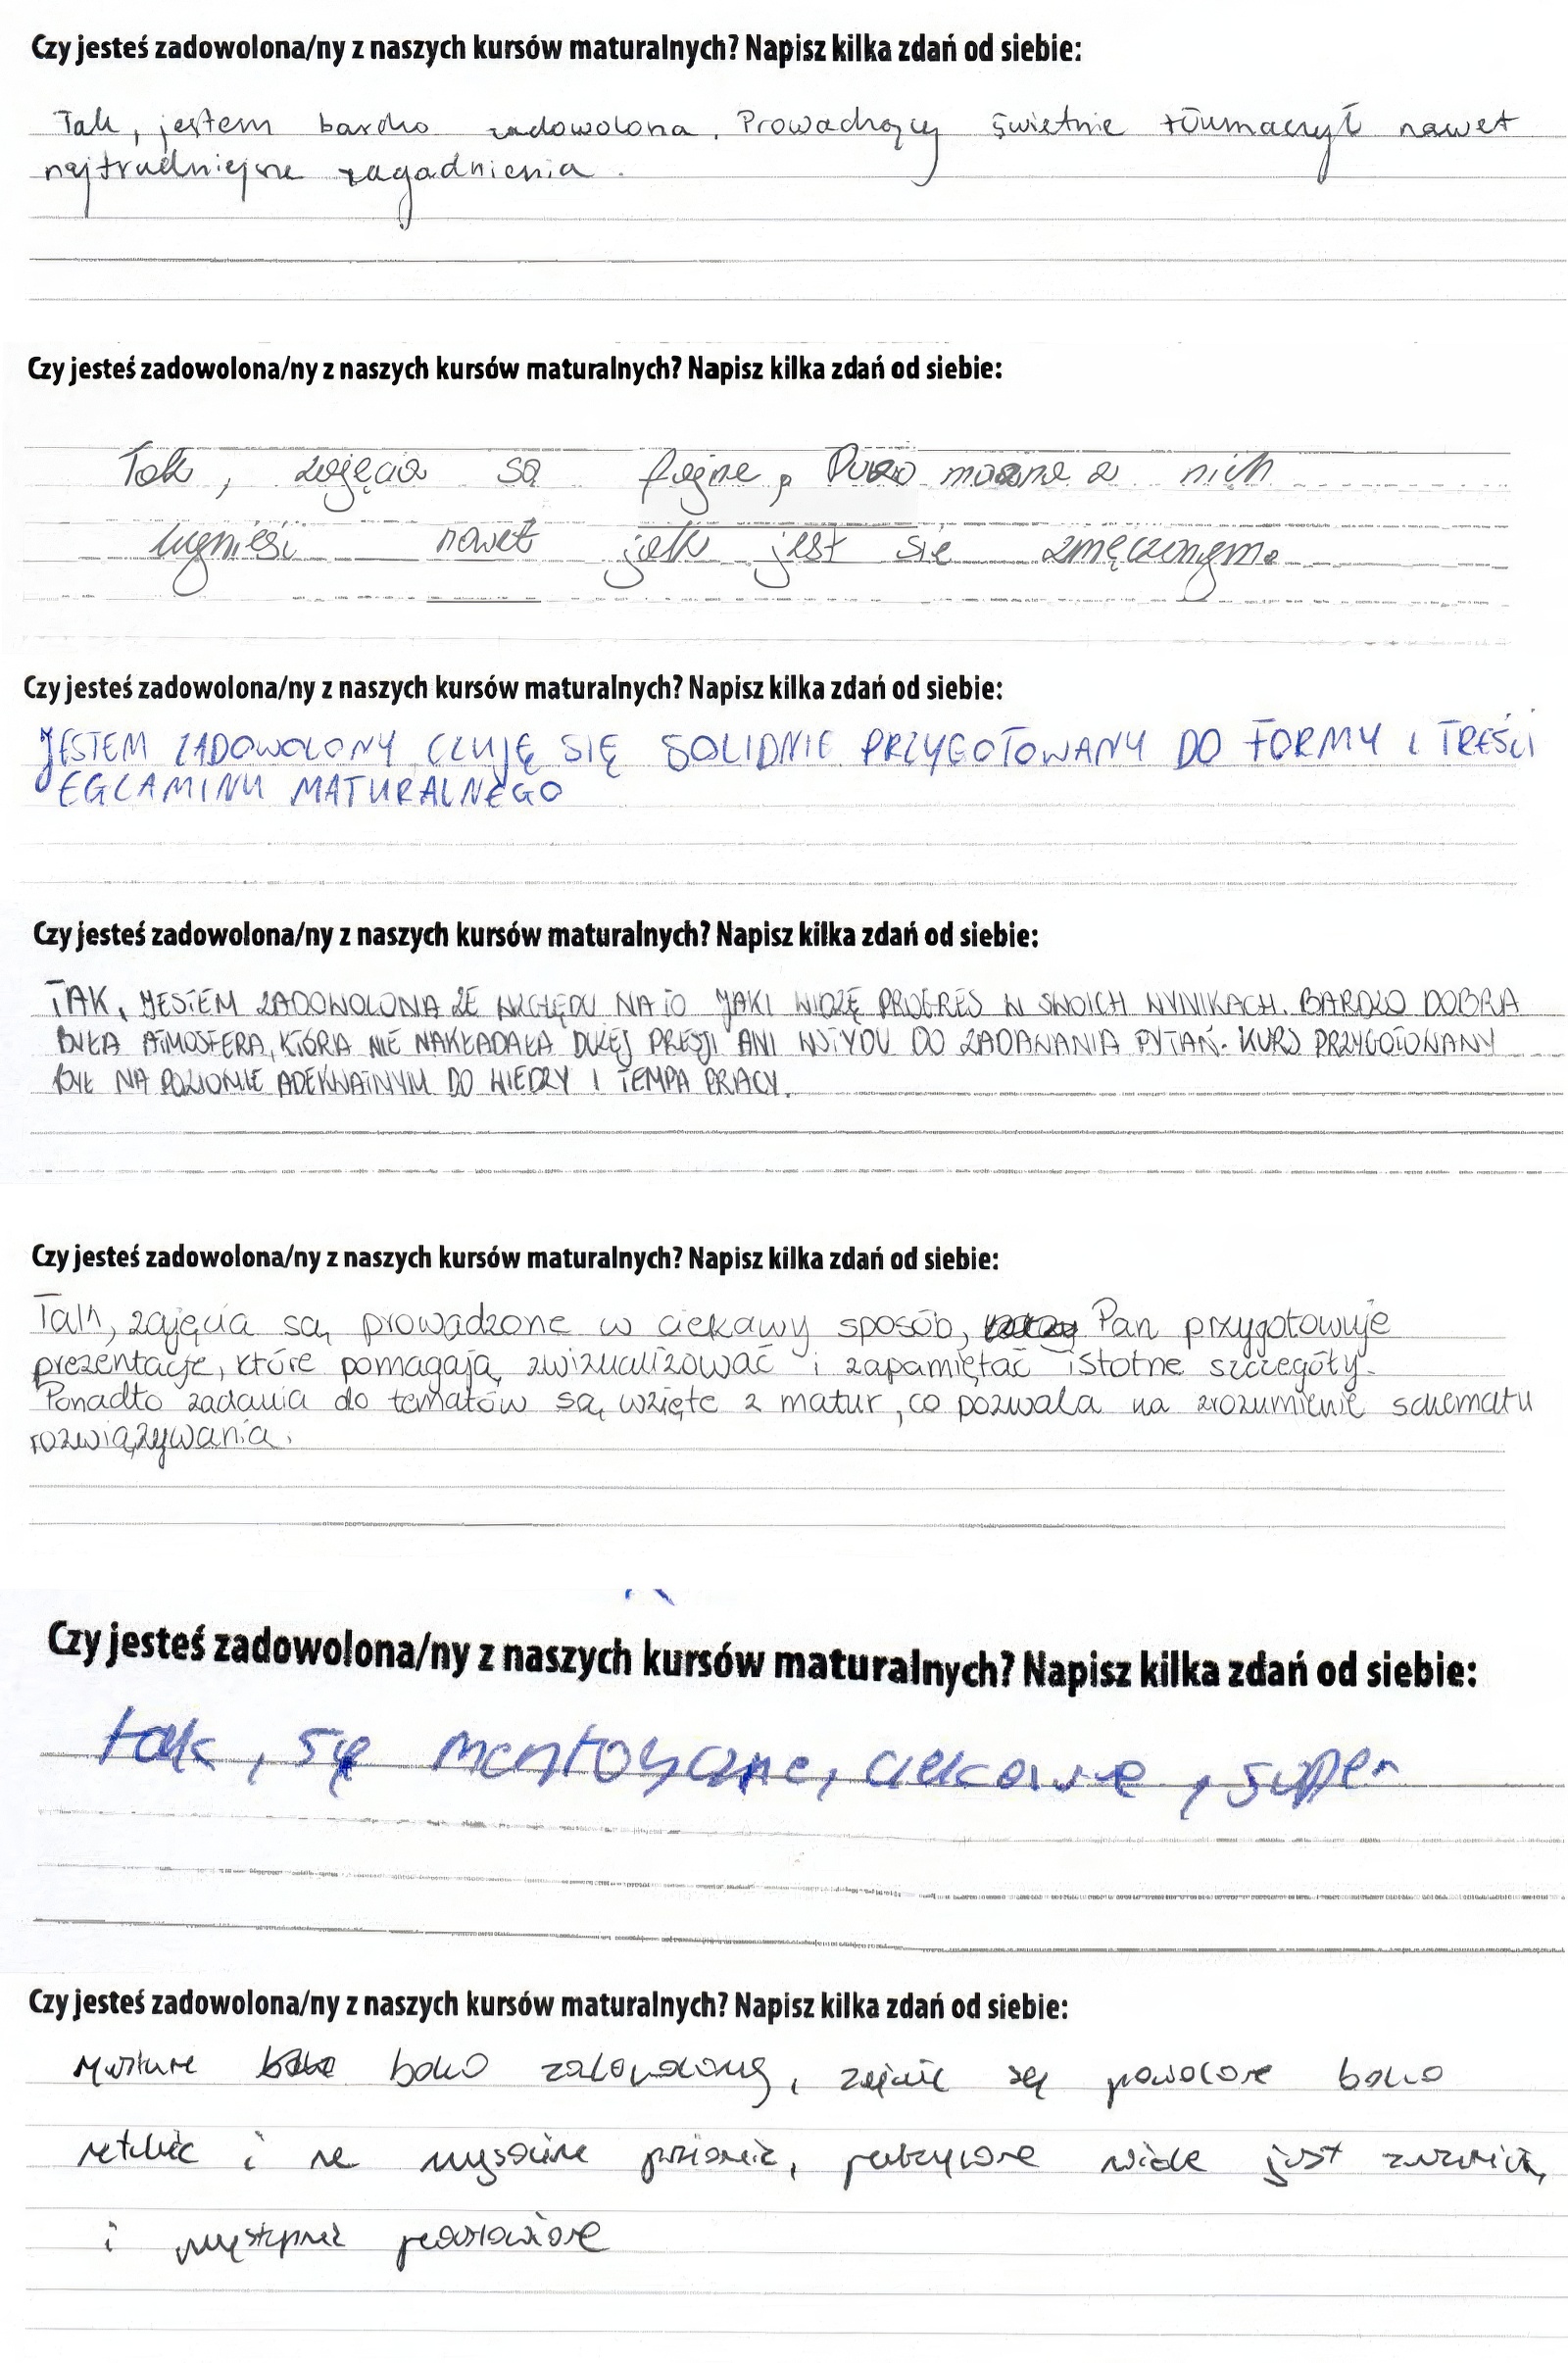 Czy jesteś zadowolona/ny z naszych kursów maturalnych? Napisz kilka zdań od siebie:
Tak, jestem bardzo zadowolona. Prowadzący świetnie tłumaczył nawet
najtrudniejsze zagadnienia.
Czy jesteś zadowolona/ny z naszych kursów maturalnych? Napisz kilka zdań od siebie:
Tak, zajęcia są fajne, Dużo można z nich
wynieść nawet jak jest się zmęczonym.
Czy jesteś zadowolona/ny z naszych kursów maturalnych? Napisz kilka zdań od siebie:
JESTEM ZADOWOLONY CZUJĘ SIĘ SOLIDNIE PRZYGOTOWANY DO FORMY I TREŚCI
EGZAMINU MATURALNEGO
Czy jesteś zadowolona/ny z naszych kursów maturalnych? Napisz kilka zdań od siebie:
TAK, JESTEM ZADOWOLONA ZE WZGLĘDU NA TO JAKI WIDZĘ PROGRES W SWOICH WYNIKACH. BARDZO DOBRA
BYŁA ATMOSFERA, KTÓRA NIE NAKŁADAŁA DUŻEJ PRESJI ANI WSTYDU DO ZADAWANIA PYTAŃ. KURS PRZYGOTOWANY
BYŁ NA POZIOMIE ADEKWATNYM DO WIEDZY I TEMPA PRACY.
Czy jesteś zadowolona/ny z naszych kursów maturalnych? Napisz kilka zdań od siebie:
Tak, zajęcia są prowadzone w ciekawy sposób, Pan przygotowuje
prezentacje, które pomagają zwizualizować i zapamiętać istotne szczegóły.
Ponadto zadania do tematów są wzięte z matur, co pozwala na zrozumienie schematu
rozwiązywania.
Czy jesteś zadowolona/ny z naszych kursów maturalnych? Napisz kilka zdań od siebie:
tak, są merytoryczne, ciekawe, super
Czy jesteś zadowolona/ny z naszych kursów maturalnych? Napisz kilka zdań od siebie:
zadowolony, zajęcia są
i na poziomie, wiedza jest
i